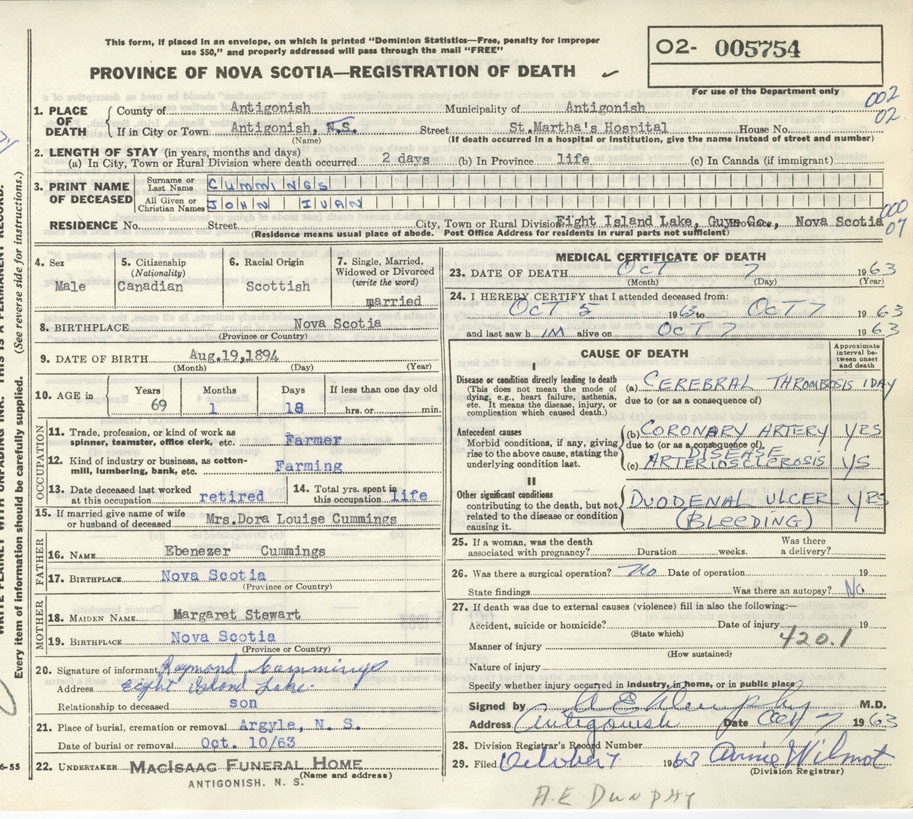 This form, if placed in an envelope, on which is printed "Dominion Statistics—Free, penalty for improper
use $50," and properly addressed will pass through the mail "FREE"
PROVINCE OF NOVA SCOTIA—REGISTRATION OF DEATH
O2- 005754
For use of the Department only
002
02
1. PLACE OF DEATH County of Antigonish Municipality of Antigonish
If in City or Town Antigonish, N.S. Street St.Martha's Hospital House No.
(Name) (If death occurred in a hospital or institution, give the name instead of street and number)
2. LENGTH OF STAY (in years, months and days)
(a) In City, Town or Rural Division where death occurred 2 days (b) In Province life (c) In Canada (if immigrant)
3. PRINT NAME OF DECEASED Surname or Last Name CUMMINGS
All Given or Christian Names JOHN IVAN
000
07
RESIDENCE No. Street City, Town or Rural Division Eight Island Lake, Guys Co., Nova Scotia
(Residence means usual place of abode. Post Office Address for residents in rural parts not sufficient)
4. Sex
Male
5. Citizenship
(Nationality)
Canadian
6. Racial Origin
Scottish
7. Single, Married, Widowed or Divorced
(write the word)
married
8. BIRTHPLACE Nova Scotia
(Province or Country)
9. DATE OF BIRTH Aug.19,1894
(Month) (Day) (Year)
10. AGE in Years Months Days If less than one day old
69 1 18 hrs. or min.
OCCUPATION
11. Trade, profession or kind of work as spinner, teamster, office clerk, etc. Farmer
12. Kind of industry or business, as cotton-mill, lumbering, bank, etc. Farming
13. Date deceased last worked at this occupation retired
14. Total yrs. spent in this occupation life
15. If married give name of wife or husband of deceased Mrs.Dora Louise Cummings
FATHER
16. NAME Ebenezer Cummings
17. BIRTHPLACE Nova Scotia
(Province or Country)
MOTHER
18. MAIDEN NAME Margaret Stewart
19. BIRTHPLACE Nova Scotia
(Province or Country)
20. Signature of informant Raymond Cummings
Address Eight Island Lake
Relationship to deceased son
21. Place of burial, cremation or removal Argyle, N. S.
Date of burial or removal Oct. 10/63
22. UNDERTAKER MACISAAC FUNERAL HOME
(Name and address)
ANTIGONISH. N. S.
MEDICAL CERTIFICATE OF DEATH
23. DATE OF DEATH Oct 7 1963
(Month) (Day) (Year)
24. I HEREBY CERTIFY that I attended deceased from:
OCT 5 1963 to OCT 7 1963
and last saw h IM alive on OCT 7 1963
CAUSE OF DEATH
Approximate interval between onset and death
I
Disease or condition directly leading to death
(This does not mean the mode of dying, e.g., heart failure, asthenia, etc. It means the disease, injury, or complication which caused death.)
(a) CEREBRAL THROMBOSIS 1 DAY
due to (or as a consequence of)
Antecedent causes
Morbid conditions, if any, giving rise to the above cause, stating the underlying condition last.
(b) CORONARY ARTERY DISEASE YRS
due to (or as a consequence of)
(c) ARTERIOSCLEROSIS YS
II
Other significant conditions
contributing to the death, but not related to the disease or condition causing it.
DUODENAL ULCER YRS
(BLEEDING)
25. If a woman, was the death associated with pregnancy? Duration weeks. Was there a delivery?
26. Was there a surgical operation? No Date of operation 19
State findings Was there an autopsy? No
27. If death was due to external causes (violence) fill in also the following:—
Accident, suicide or homicide? Date of injury 19
(State which)
420.1
Manner of injury
(How sustained)
Nature of injury
Specify whether injury occurred in industry, in home, or in public place
Signed by A E Dunphy M.D.
Address Antigonish Date Oct 7 1963
28. Division Registrar's Record Number
29. Filed October 7 1963 Annie Wilmot
(Division Registrar)
A.E DUNPHY
THIS IS A PERMANENT RECORD.
Every item of information should be carefully supplied. (See reverse side for instructions.)
6-55